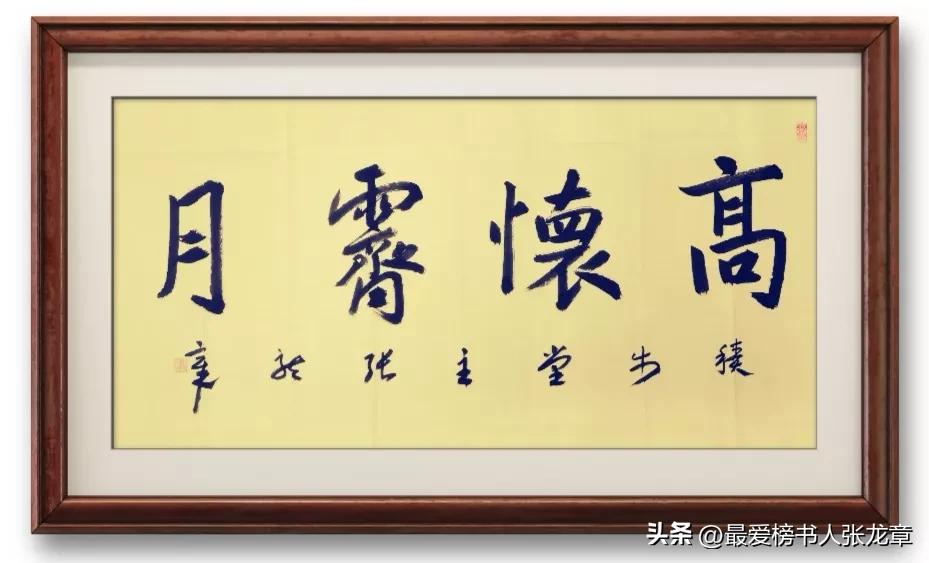 高懷霽月
積步堂主张龙章
头条 @最爱榜书人张龙章